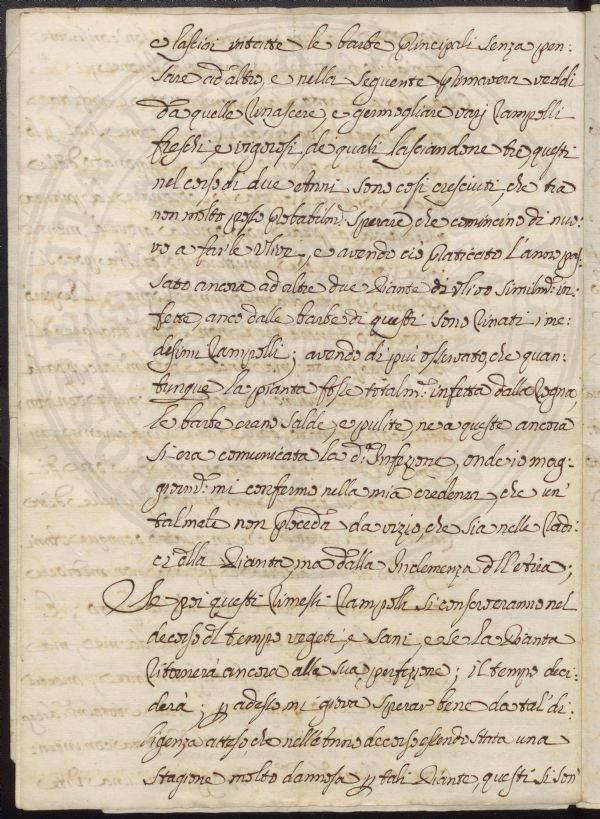 e lascioi intatte le barbe Principali senza pen:
sare ad'altro, e nella sequente Primavera vedoli
da quelle rinascere, e germogliare varj rampolli
freschi, e vigorosi, de quali lasciandone tre, questi
nel corso di due Anni sono così cresciuti, che tra
non molto posso Probabilm: sperare, che comincino di nuo:
vo a far le Ulive, e avendo ciò Praticato l'anno pas:
sato ancora ad altre due Piante di Ulivo similm: in:
fette, anco dalle barbe di questi sono rinati i me:
desimi rampolli; avendo di più osservato, che quan:
tunque la pianta fosse totalm: infetta dalla rogna,
le barbe erano salde, e pulite, ne a queste ancora
si era comunicata la d: Infezione, onde io mag:
giorm: mi confermo nella mia credenza, che un'
tal'male non proceda da vizio, che sia nelle radi:
ci della Pianta, ma dalla Inclemenza dell'Aria;
Se poi questi rimessi rampolli si conserveranno nel
decorso del tempo vegeti, e sani, e se la Pianta
ritornerà ancora alla sua perfezione; il tempo deci:
derà; p adesso mi giova sperar bene da tal' di:
ligenza atteso che nell'Anno decorso essendo stata una
stagione molto dannosa p tali Piante, questi si son'